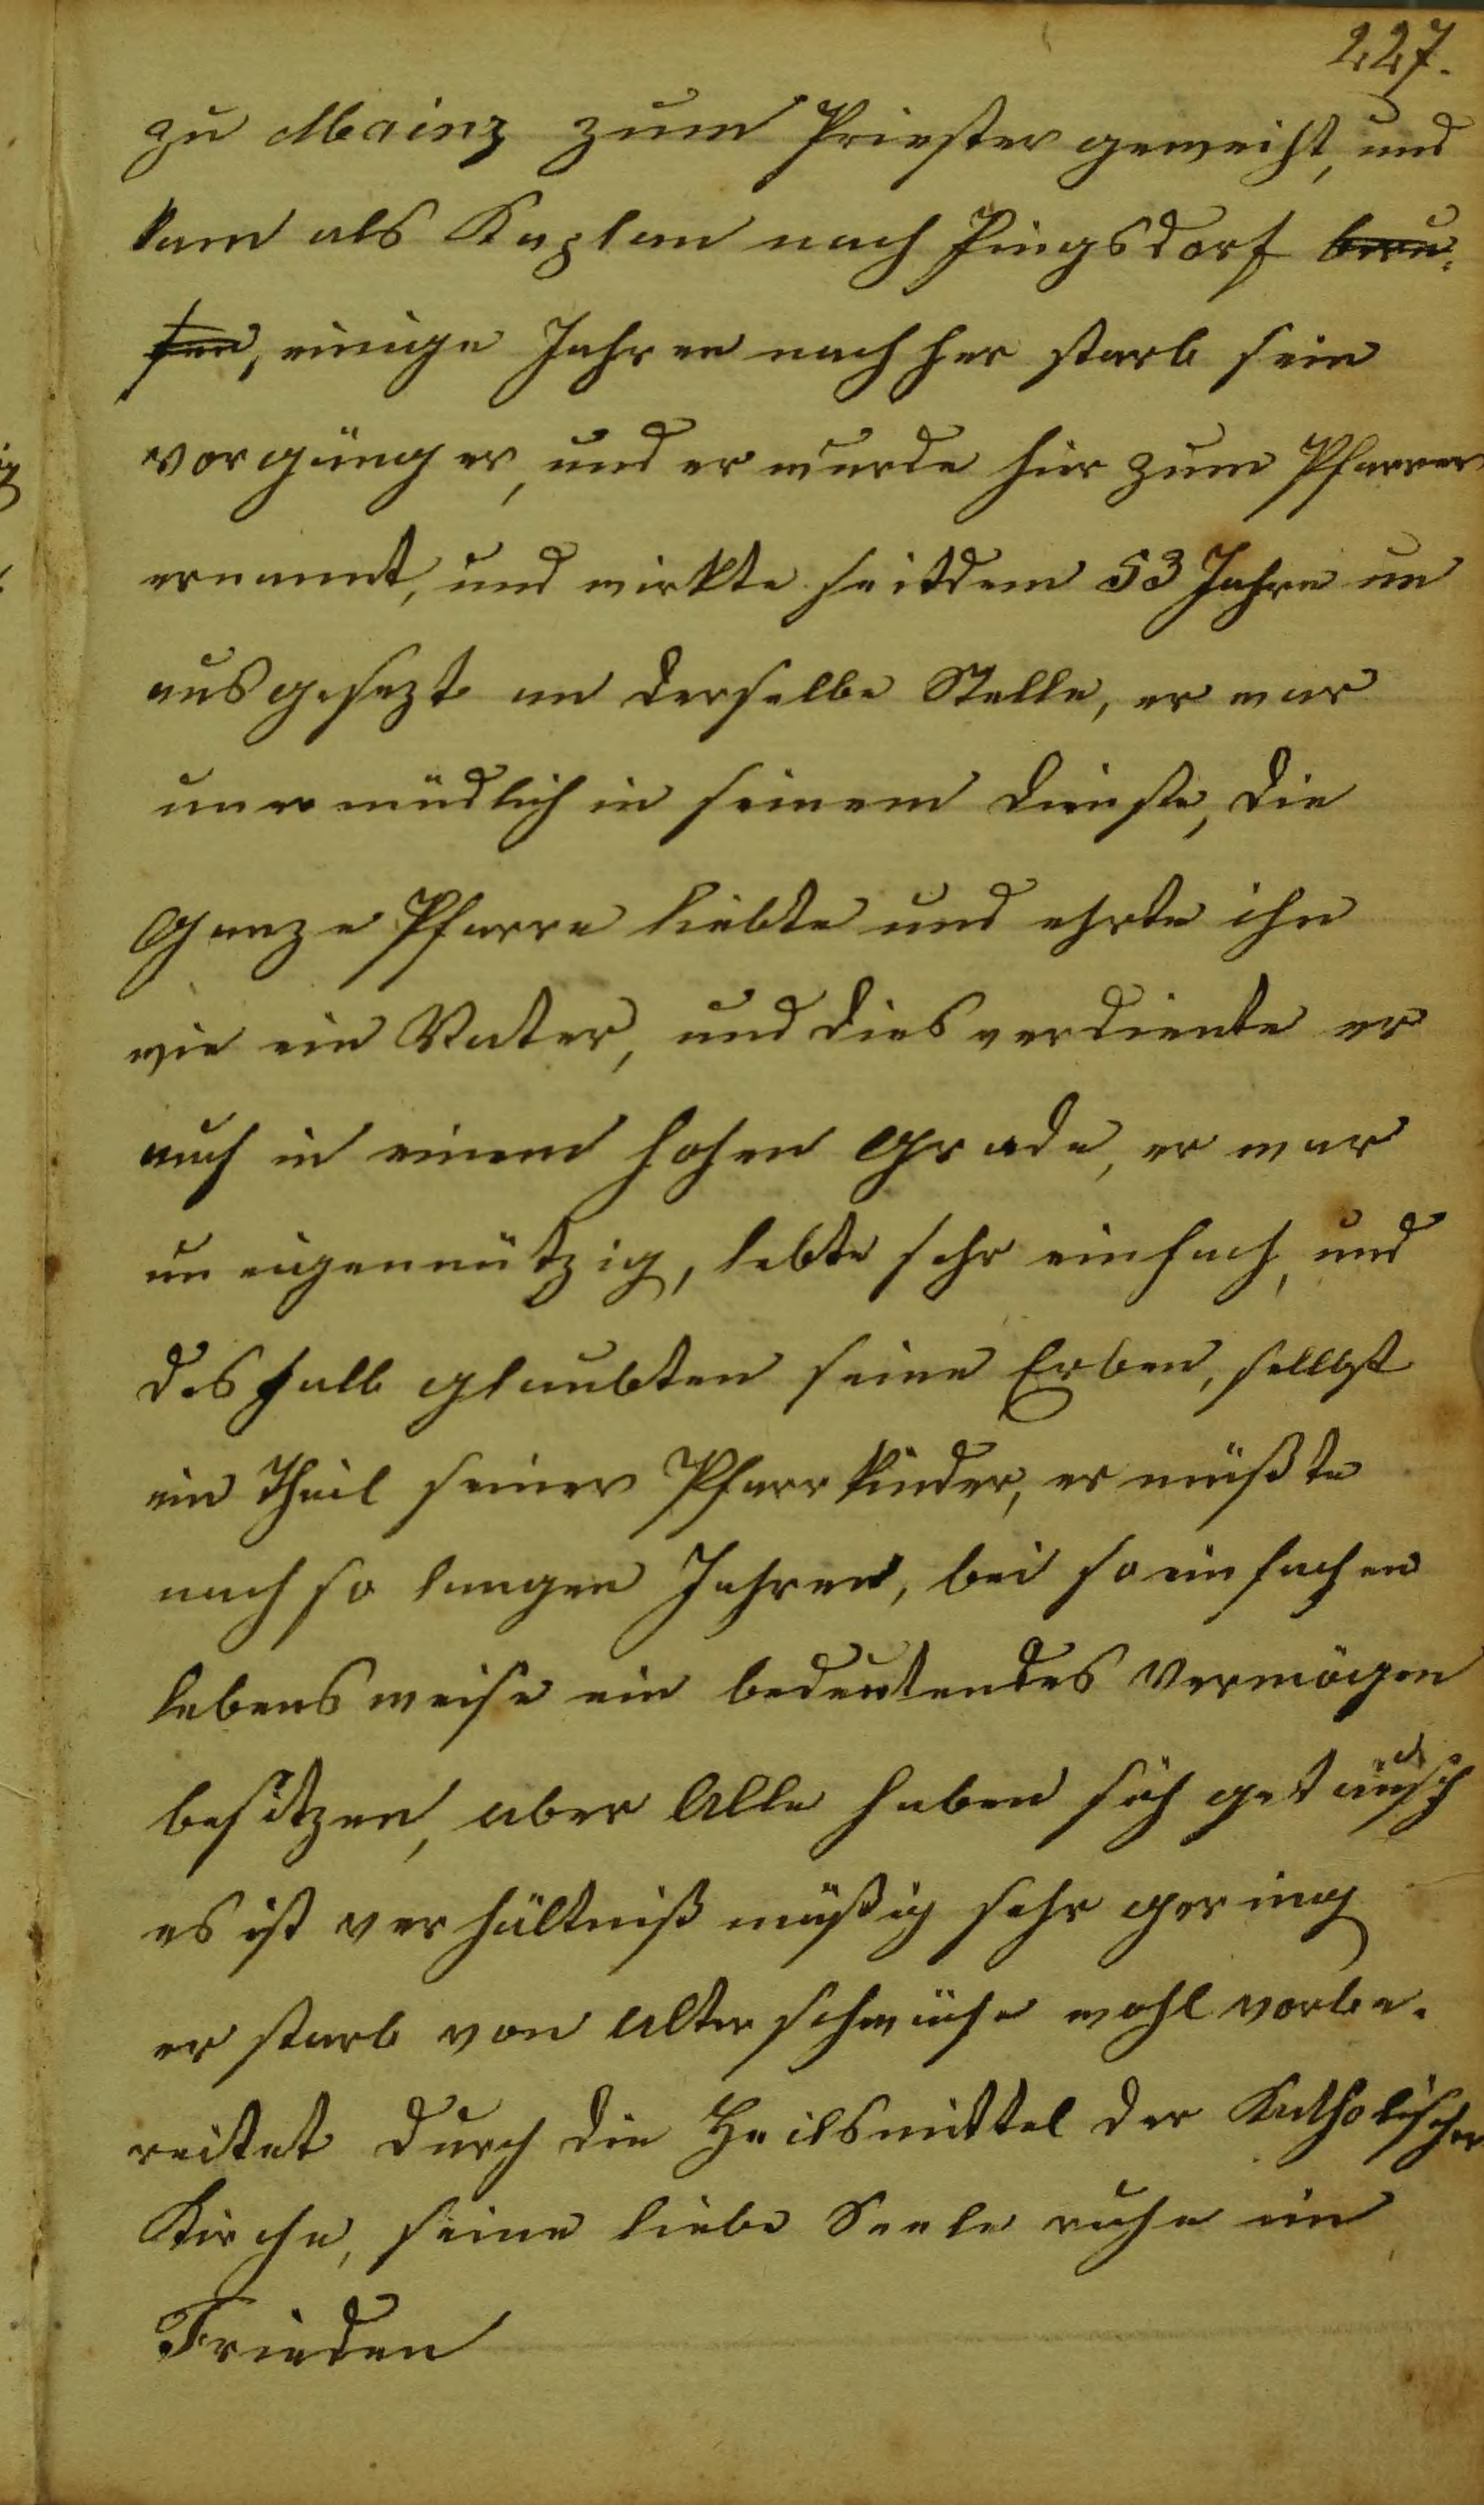 227.
zu Mainz zum Priester geweiht, und
kam als Kaplan nach Pingsdorf beru¬
fen, einige Jahren nachher starb sein
vorgänger, und er wurde hier zum Pfarrer
ernannt, und wirkte seitdem 53 Jahre un
ausgesezt an derselbe Stelle, er war
unermüdlich in seinem Dienste, die
Ganze Pfarre liebte und ehrte ihn
wie ein Vater, und dies verdiente er
auch in einem hohen Grade, er war
uneigennützig, lebte sehr einfach, und
deshalb glaubten seine Erben, sellbst
ein Theil seiner Pfarrkinder, er müßte
nach so langen Jahren, bei so einfachen
lebensweise ein bedeutendes Vermögen
besitzen, aber Alle haben sich getäuscht
es ist verhältnißmäßig sehr gering
er starb von Alterschwäche wohl vorbe¬
reitet durch die Heilsmittel der Katholischen
Kirche, seine liebe Seele ruhe im
Frieden